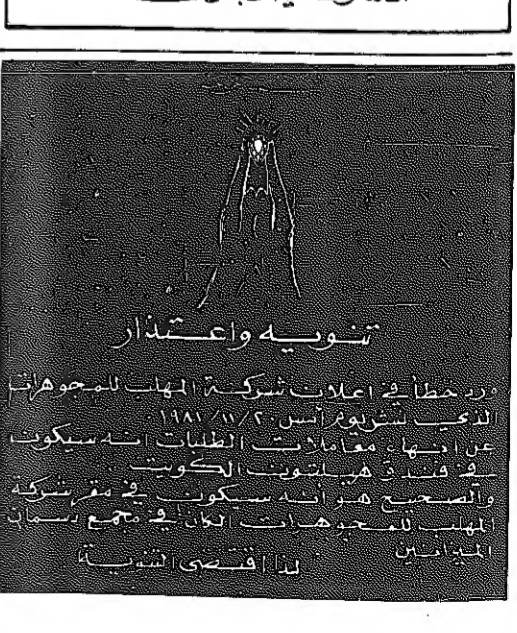 تنويه واعتذار
ورد خطأ في اعلان شركة المهلب للمجوهرات
الذي نشر يوم أمس ١٩٨١/١١/٢٠
عن انهاء معاملات الطلبات انه سيكون
في فندق هيلتون الكويت
والصحيح هو انه سيكون في مقر شركة
المهلب للمجوهرات الكائن في مجمع
الميدانيين
لذا اقتضى التنويه